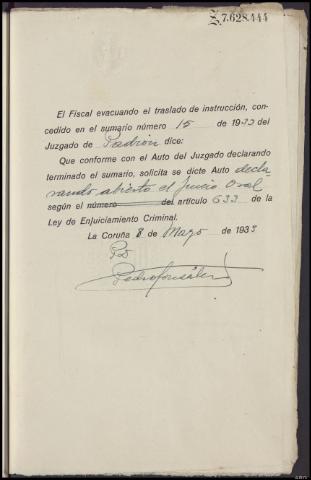 Z.7.628.444
El Fiscal evacuando el traslado de instrucción, con-
cedido en el sumario número 15 de 1933 del
Juzgado de Padrón dice:
Que conforme con el Auto del Juzgado declarando
terminado el sumario, solicita se dicte Auto decla
rando abierto el juicio Oral
según el número del artículo 633 de la
Ley de Enjuiciamiento Criminal.
La Coruña 8 de Mayo de 1933
Pedro González